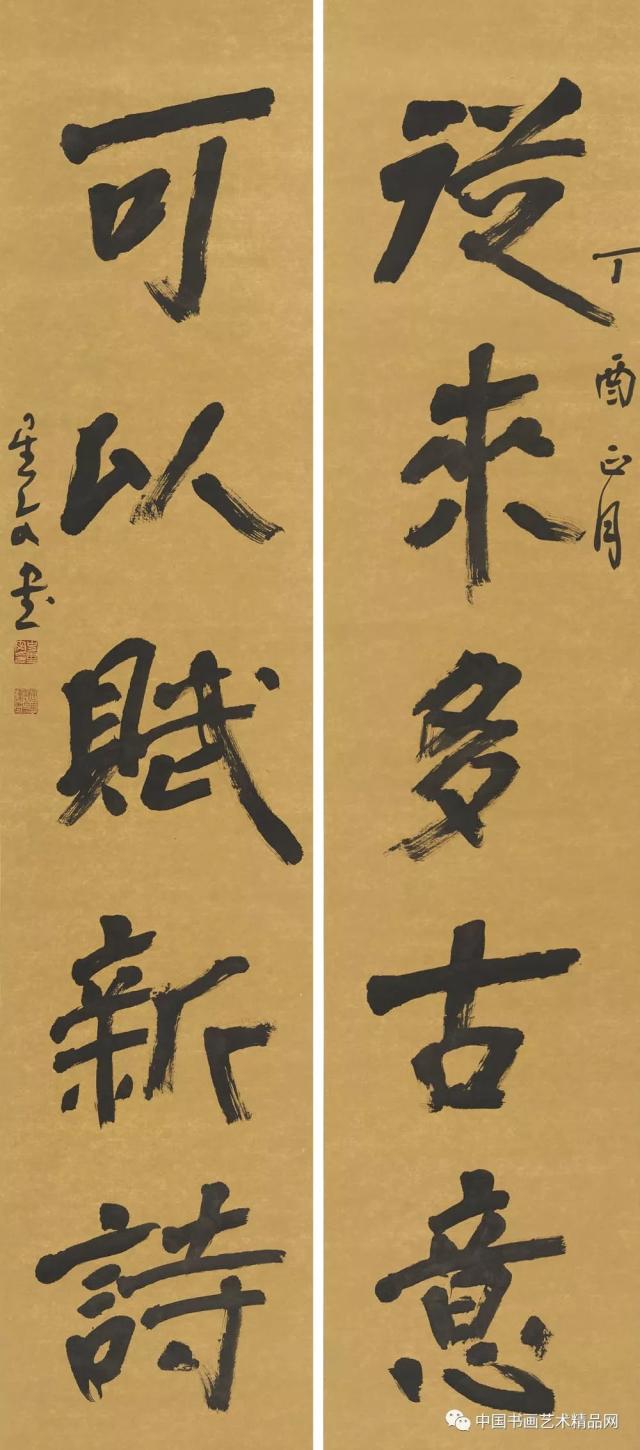 從來多古意
丁酉正月
可以賦新詩
星文書
中国书画艺术精品网